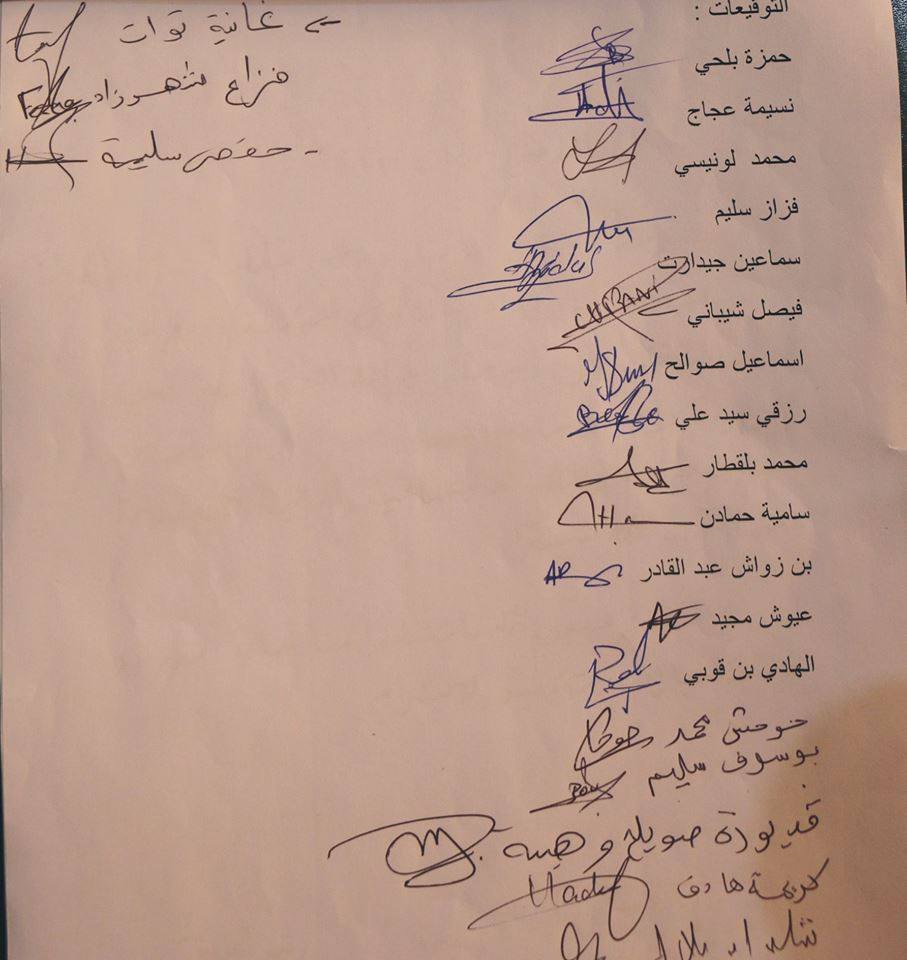 التوقيعات :
حمزة بلحي
نسيمة عجاج
محمد لونيسي
فزاز سليم
سماعين جيدارت
فيصل شيباني
اسماعيل صوالح
رزقي سيد علي
محمد بلقطار
سامية حمادن
بن زواش عبد القادر
عيوش مجيد
الهادي بن قوبي
خوحش محمد
بوسوف سليم
قديورة صويلح وهيبة
كريمة هادف
بلال
غانية توات
فزاع شهرزاد
- حفص سليمة